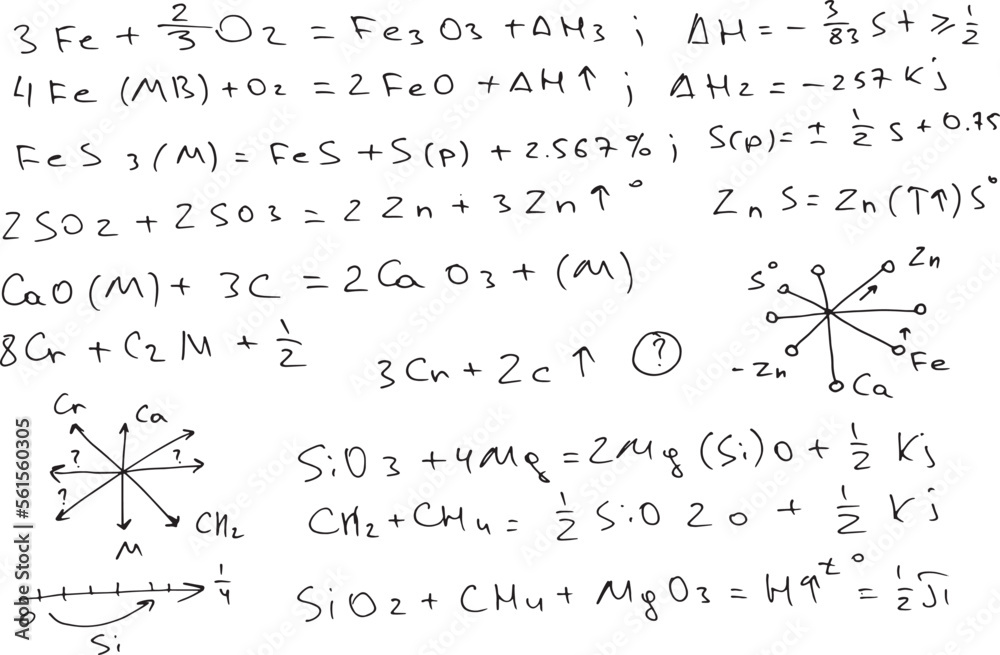 3 Fe + 2/3 O2 = Fe3 O3 + ΔH3 ; ΔH = - 3/83 S + ≫ 1/2
4 Fe (MB) + O2 = 2 FeO + ΔH ↑ ; ΔH2 = - 257 Kj
FeS 3 (M) = FeS + S (p) + 2.567 % ; S(p) = ± 1/2 S + 0.75
2 SO2 + 2 SO3 = 2 Zn + 3 Zn ↑ ° Zn S = Zn (T↑) S°
CaO (M) + 3C = 2 Ca O3 + (M)
S° Zn
8Cr + C2 M + 1/2 3 Cr + 2c ↑ ?
- Zn Ca Fe
Cr Ca
? ?
?
CH2
M
SiO3 + 4Mg = 2Mg (Si) O + 1/2 Kj
CH2 + CH4 = 1/2 SiO 2o + 1/2 Kj
1/4
Si
SiO2 + CH4 + MgO3 = H↑ t° = 1/2 Ji
Adobe Stock | #561560305